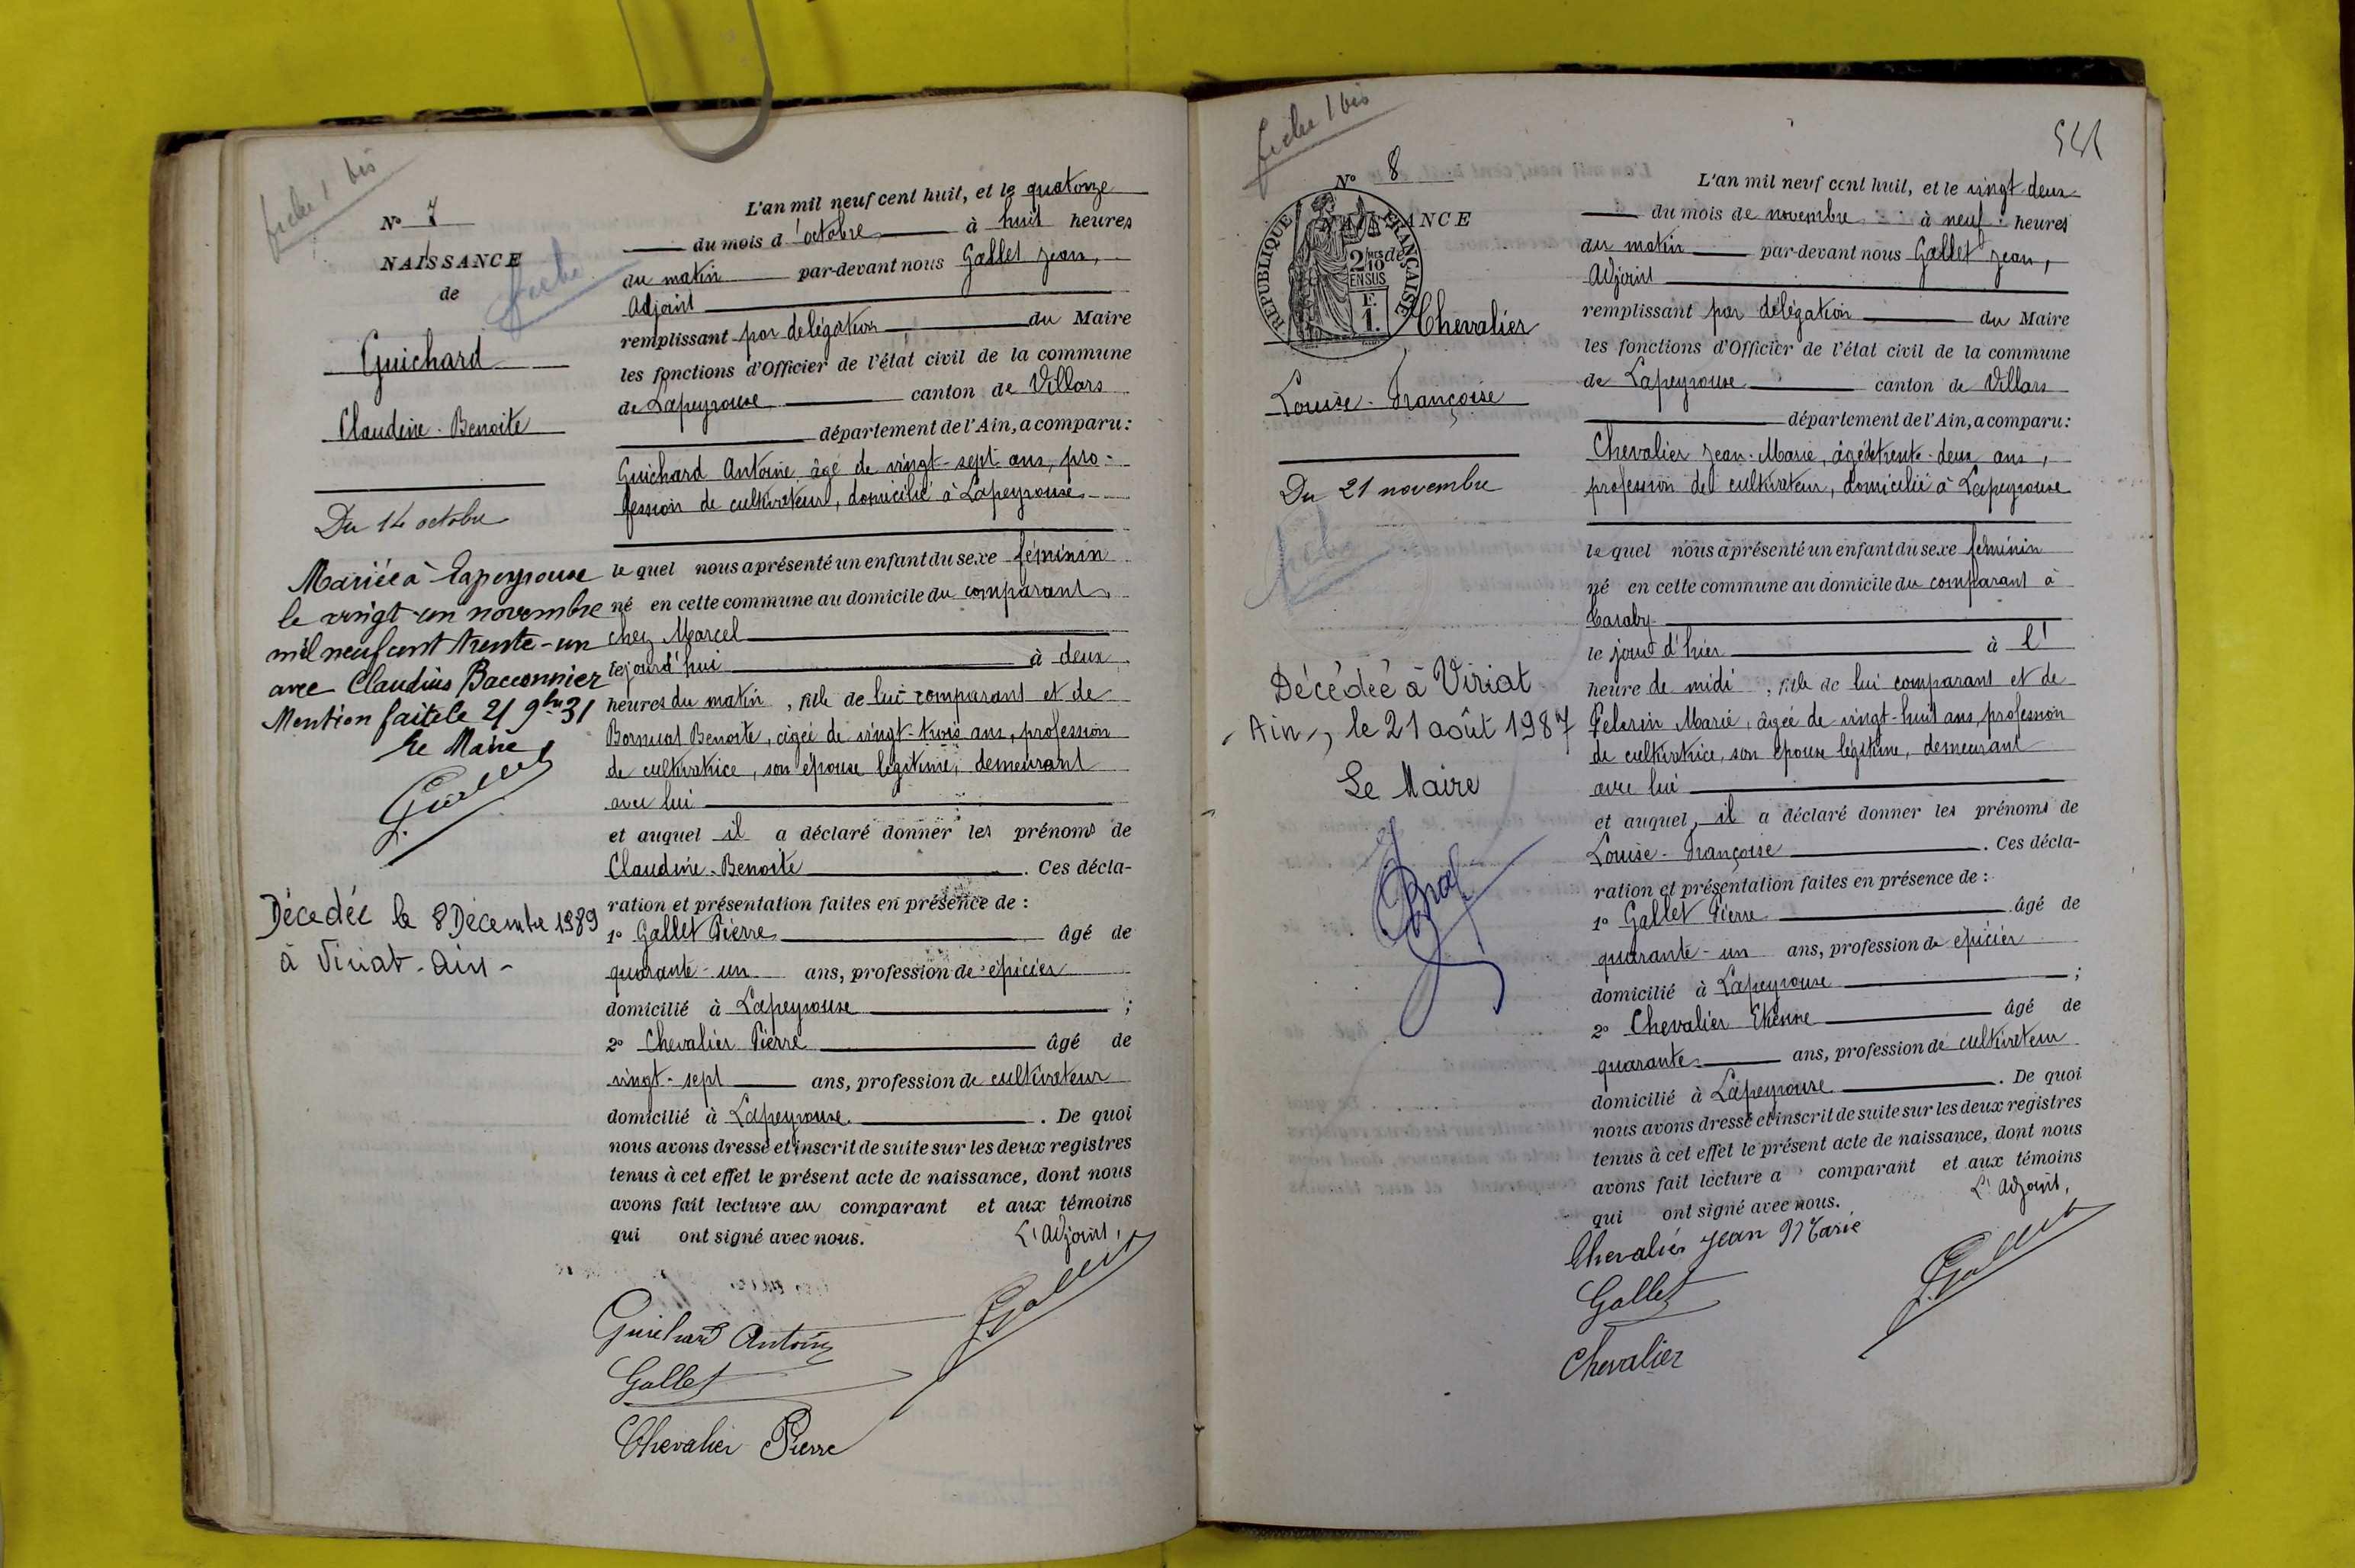 fiche 1 bis
N° 7
NAISSANCE
de
fiche
Guichard
Claudine-Benoite
Du 14 octobre
Mariée à Lapeyrouse
le vingt-un novembre
mil neuf cent trente-un
avec Claudius Bacconnier
Mention faite le 21 9bre 31
Le Maire
Décédée le 8 Décembre 1989
à Viriat-Ain-
L'an mil neuf cent huit, et le quatorze
du mois d'octobre à huit heures
du matin par-devant nous Gallet Jean,
Adjoint
remplissant par délégation du Maire
les fonctions d'Officier de l'état civil de la commune
de Lapeyrouse canton de Villars
département de l'Ain, a comparu:
Guichard Antoine, âgé de vingt-sept ans, pro-
fession de cultivateur, domicilié à Lapeyrouse
le quel nous a présenté un enfant du sexe féminin
né en cette commune au domicile du comparant,
chez Marcel
le jourd'hui à deux
heures du matin, fille de lui comparant et de
Benoite, âgée de vingt-trois ans, profession
de cultivatrice, son épouse légitime, demeurant
avec lui
et auquel il a déclaré donner les prénoms de
Claudine-Benoite. Ces décla-
ration et présentation faites en présence de :
1° Gallet Pierre âgé de
quarante-un ans, profession de épicier
domicilié à Lapeyrouse ;
2° Chevalier Pierre âgé de
vingt-sept ans, profession de cultivateur
domicilié à Lapeyrouse. De quoi
nous avons dressé et inscrit de suite sur les deux registres
tenus à cet effet le présent acte de naissance, dont nous
avons fait lecture au comparant et aux témoins
qui ont signé avec nous. L'Adjoint,
Guichard Antoine
J. Gallet
Gallet
Chevalier Pierre
fiche 1 bis
N° 8
NAISSANCE
REPUBLIQUE FRANÇAISE
2/10 MES de
EN SUS
F.
1.
Chevalier
Louise-Françoise
Du 21 novembre
fiche
Décédée à Viriat
-Ain-, le 21 août 1987
Le Maire
L'an mil neuf cent huit, et le vingt deux
du mois de novembre à neuf heures
du matin par-devant nous Gallet Jean,
Adjoint
remplissant par délégation du Maire
les fonctions d'Officier de l'état civil de la commune
de Lapeyrouse canton de Villars
département de l'Ain, a comparu:
Chevalier Jean-Marie, âgé de trente-deux ans,
profession de cultivateur, domicilié à Lapeyrouse
le quel nous a présenté un enfant du sexe féminin
né en cette commune au domicile du comparant à
Caraby
le jour d'hier à l'
heure de midi, fille de lui comparant et de
Pelerin Marie, âgée de vingt-huit ans, profession
de cultivatrice, son épouse légitime, demeurant
avec lui
et auquel, il a déclaré donner les prénoms de
Louise-Françoise. Ces décla-
ration et présentation faites en présence de :
1° Gallet Pierre âgé de
quarante-un ans, profession de épicier
domicilié à Lapeyrouse ;
2° Chevalier Etienne âgé de
quarante ans, profession de cultivateur
domicilié à Lapeyrouse. De quoi
nous avons dressé et inscrit de suite sur les deux registres
tenus à cet effet le présent acte de naissance, dont nous
avons fait lecture a comparant et aux témoins
qui ont signé avec nous. L'Adjoint,
Chevalier Jean Marie
Gallet
J. Gallet
Chevalier